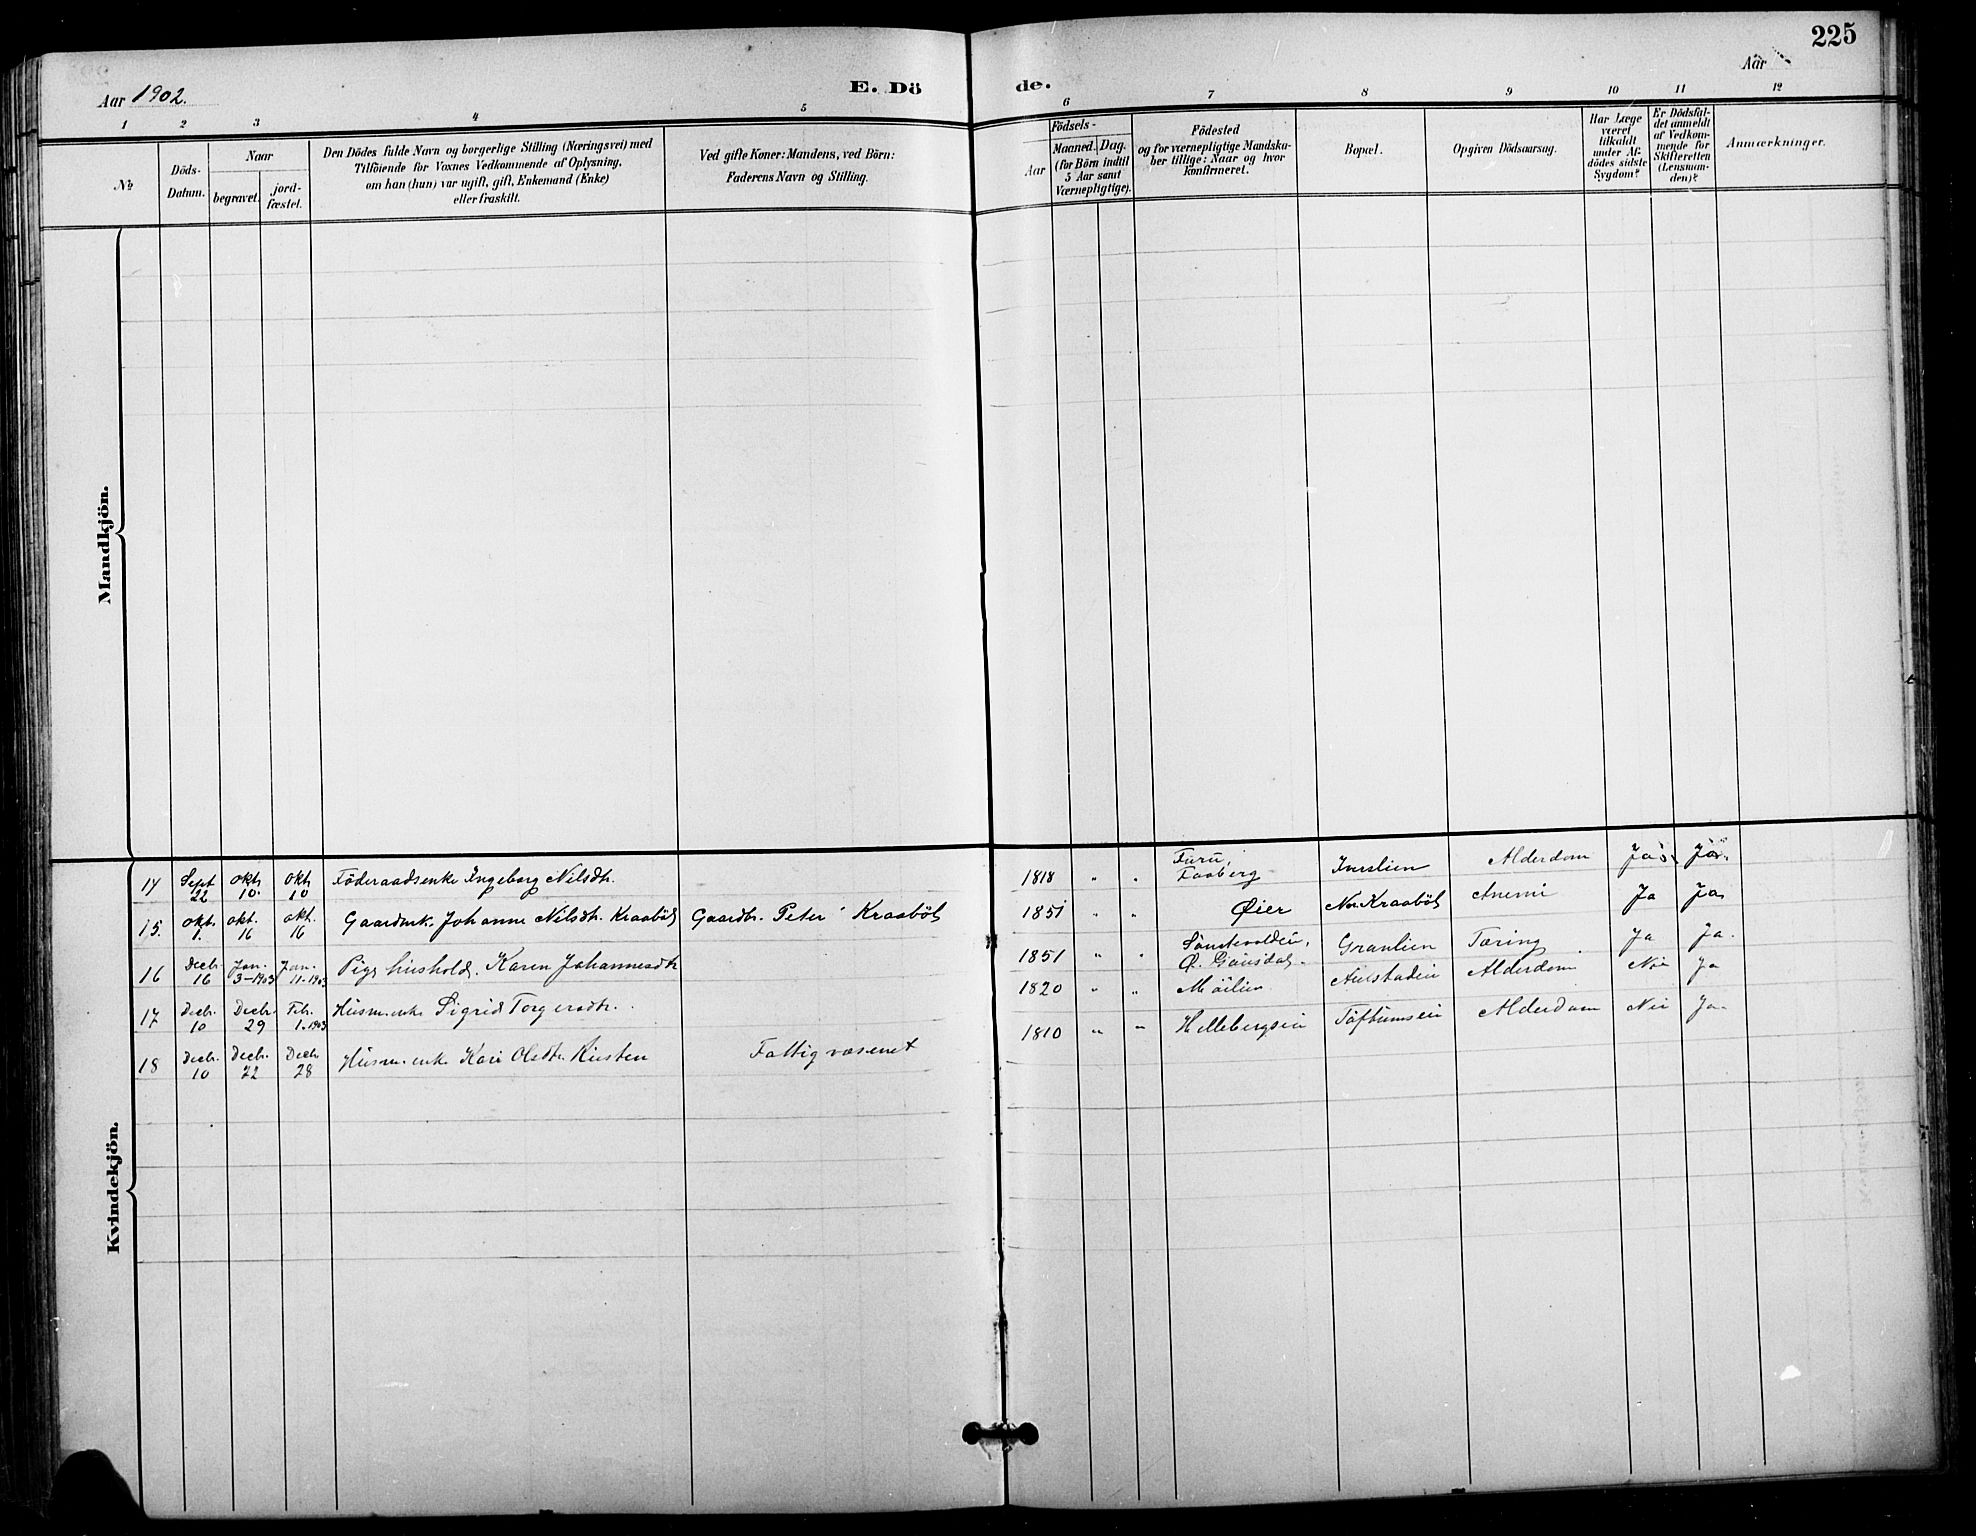 225
Aar 1902.
E. Dö
de.
Aar
1 2 3 4 5 6 7 8 9 10 11 12
No
Döds-
Datum.
Naar
begravet.
jord-
fæstet.
Den Dödes fulde Navn og borgerlige Stilling (Næringsvei) med
Tilföiende for Voxnes Vedkommende af Oplysning,
om han (hun) var ugift, gift, Enkemand (Enke)
eller fraskilt.
Ved gifte Koner: Mandens, ved Börn:
Faderens Navn og Stilling.
Födsels-
Aar
Maaned. Dag.
(for Börn indtil
5 Aar samt
Værnepligtige).
Födested
og for værnepligtige Mandska-
ber tillige: Naar og hvor
konfirmeret.
Bopæl.
Opgiven Dödsaarsag.
Har Læge
været
tilkaldt
under Af-
dödes sidste
Sygdom?
Er Dödsfal-
det anmeldt
af Vedkom-
mende for
Skifteretten
(Lensman-
den)?
Anmærkninger.
Mandkjön.
Kvindekjön.
14 Sept 22 Okt 10. Okt 10 Föderaadsenke Ingeborg Nilsdtr. 1818 " " Furu, Faaberg Alderdom Ja Ja.
15. Okt. 1. Okt. 16 Okt. 16 Gaardmk. Johanne Nilsdtr. Kraaböl Gaardbr. Peter Kraaböl 1851 " " Øier No. Kraaböl Anemi Ja Ja
16 Decbr. 16 Jan. 3-1903 Jan. 11-1903 Pige husholds. Karen Johannesdtr 1851 " " Ø. Gausdal. Granlien Tæring Ja Ja.
17 Decbr. 10 Decbr. 29 Febr. 1-1903 Husm. enke Sigrid Torgersdtr. 1820 " " Moilien Aulstadei Alderdom Nei Ja
18 Decbr. 10 Decbr. 22 Decbr 28 Husm. enke Kari Olsdtr. Rusten Fattigvæsenet 1810 " " Hellebergsei Toftumsei Alderdom Nei Ja